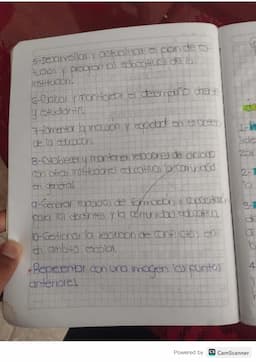 5-Desarrollar y actualizar el plan de es-
tudios y programas educativos de la
institución.
6-Evaluar y monitorear el desempeño docente
y estudiantil
7-Fomentar la inclusión y equidad en el proceso
de la educación.
8-Establecer y mantener relaciones de
con otras instituciones educativas y comunidad
en general.
9-Generar espacios de formación y capacitación
para los docentes y la comunidad educativa.
10-Gestionar la resolución de conflictos en
en ámbito escolar.
*Representar con una imagen los puntos
anteriores
Powered by CS CamScanner